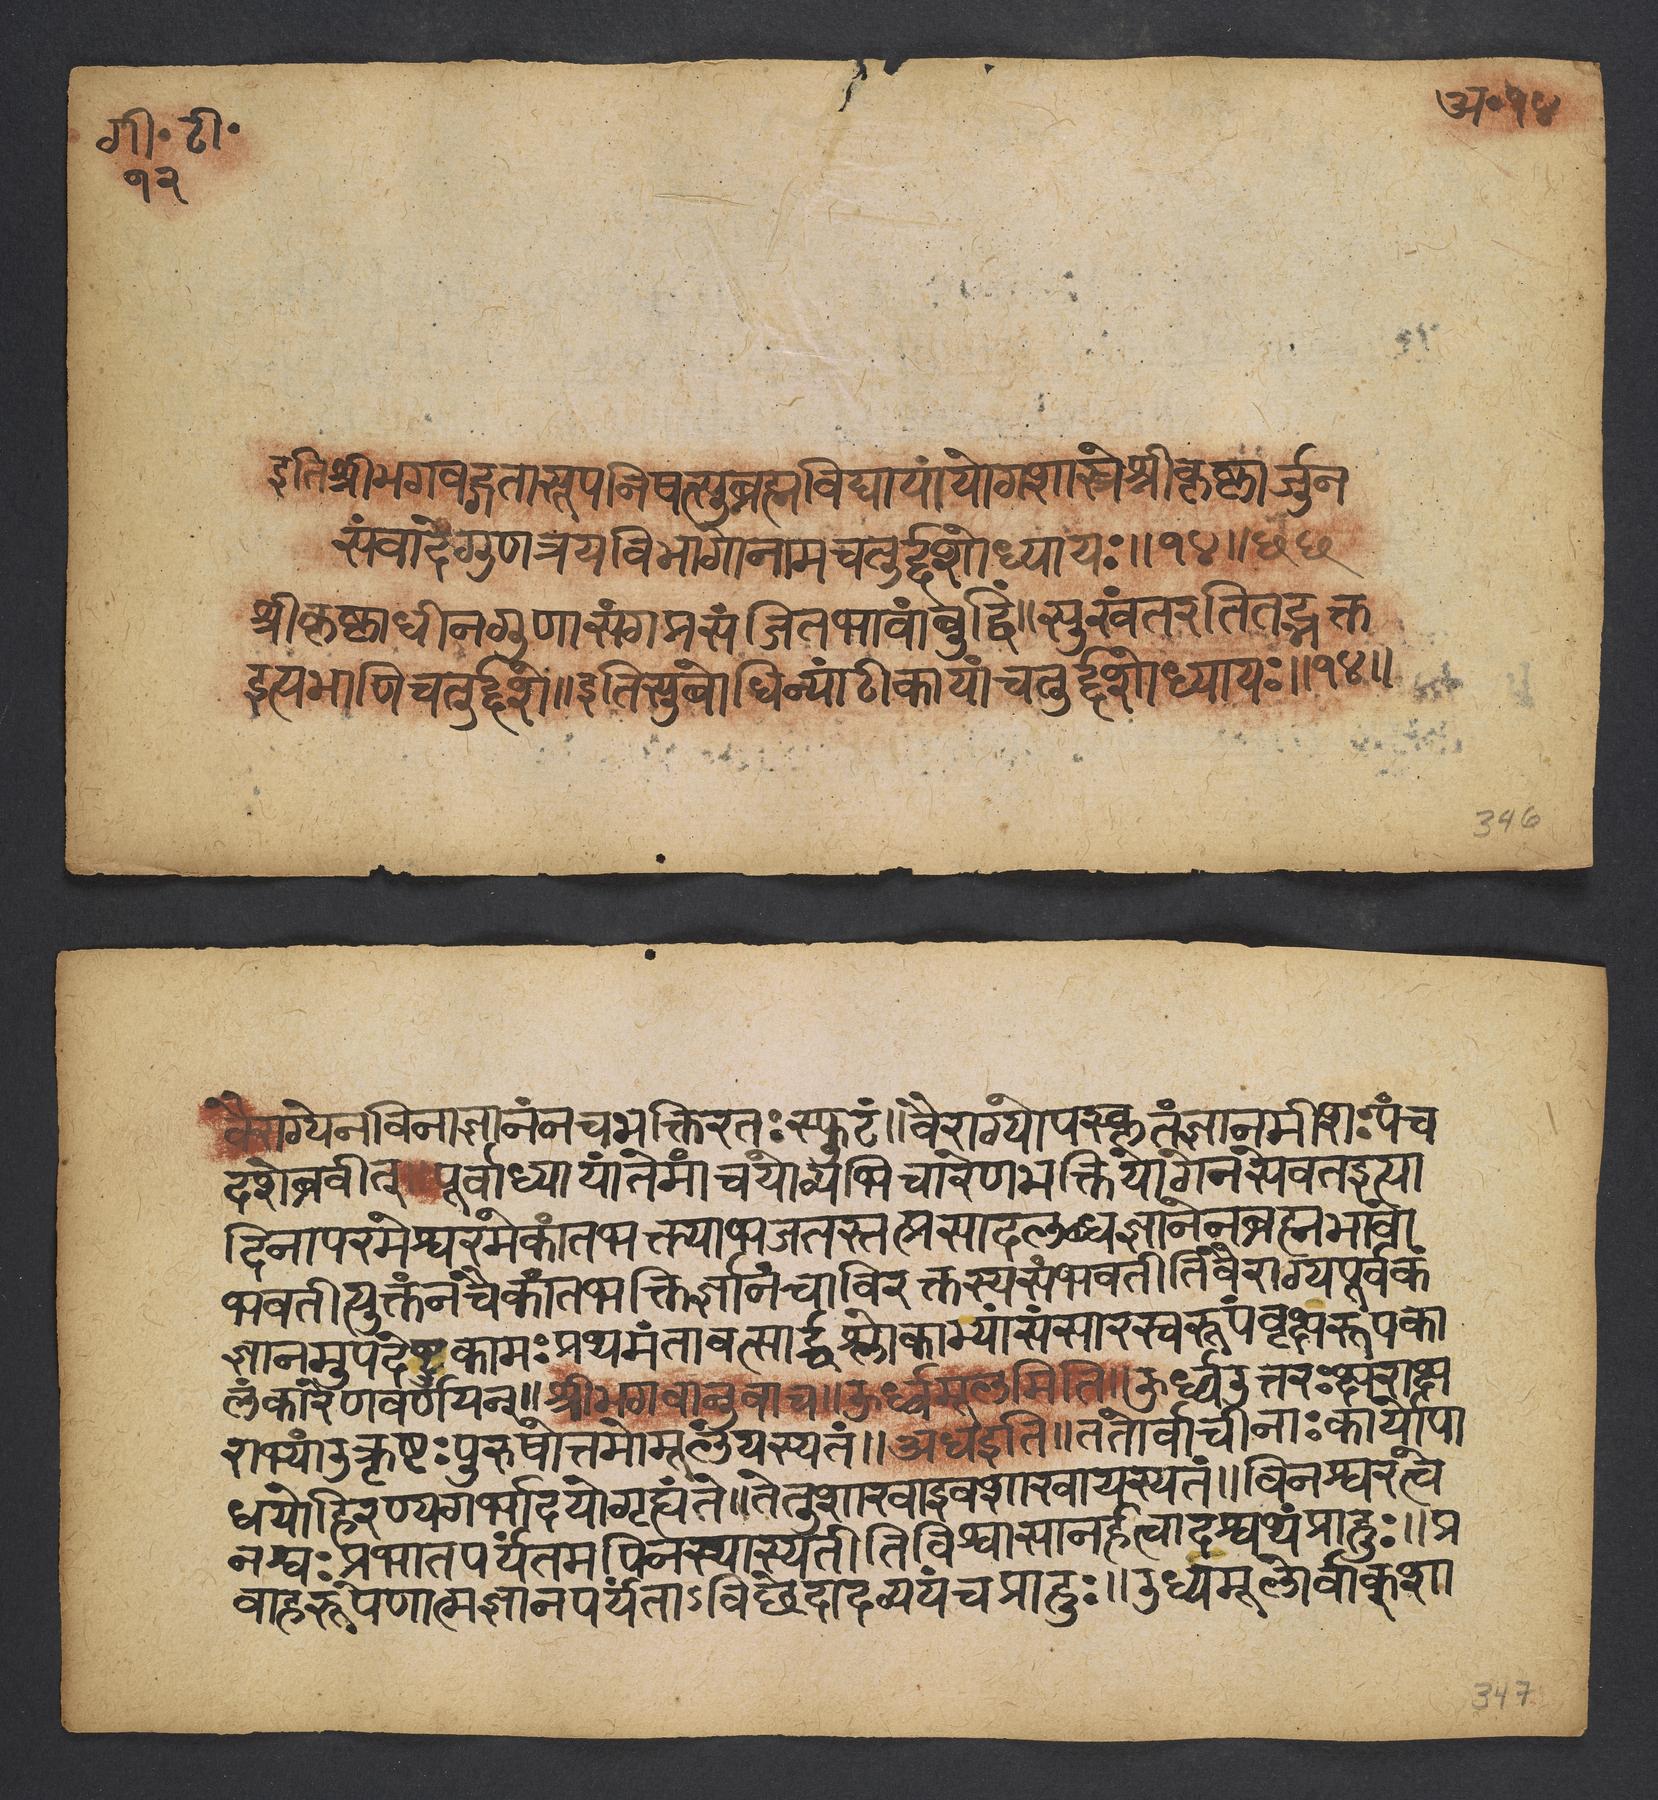 गी॰ टी॰
१२
अ॰१४
इतिश्रीभगवद्गतासूपनिषत्सुब्रह्मविद्यायांयोगशास्त्रेश्रीकृष्णार्जुन
संवादेगुणत्रयविभागोनामचतुर्द्दशोध्यायः॥१४॥छ छ
श्रीकृष्णाधीनगुणासंगप्रसंजितभवांबुद्धिं॥सुखंतरतितद्भक्त
इत्यभाणिचतुर्द्दशे॥इतिसुबोधिन्यांटीकायांचतुर्द्दशोध्यायः॥१४॥
346
वैराग्येनविनाज्ञानंनचभक्तिरतःस्फुटं॥वैराग्योपस्कृतंज्ञानमीशःपंच
दशेब्रवीत् पूर्वाध्यायांतेमांचयोव्यभिचारेणभक्तियोगेनसेवतइत्या
दिनापरमेश्वरमेकांतभक्त्याभजतस्तत्प्रसादलब्धज्ञानेनब्रह्मभावो
भवतीत्युक्तंनचैकांतभक्तिर्ज्ञानंचाविरक्तस्यसंभवतीतिवैराग्यपूर्वकं
ज्ञानमुपदेष्टुकामःप्रथमंतावत्सार्द्धश्लोकाभ्यांसंसारस्वरूपंवृक्षरूपका
लंकारेणवर्णयिन्॥श्रीभगवानुवाच॥ऊर्ध्वमूलमिति॥ऊर्ध्वउत्तरःक्षराक्ष
राभ्यांउत्कृष्टःपुरुषोत्तमोमूलंयस्यतं॥अधइति॥ततोर्वाचीनाःकार्योपा
धयोहिरण्यगर्भादयोगृह्यंते॥तेतुशाखाइवशाखायस्यतं॥विनश्वरत्वे
नश्वःप्रभातपर्यंतमपिनस्थास्यतीतिविश्वासानर्हत्वादश्वथंप्राहुः॥प्र
वाहरूपेणात्मज्ञानपर्यंताऽविछेदादव्ययंचप्राहुः॥उर्ध्वमूलोर्वाक्शा
347